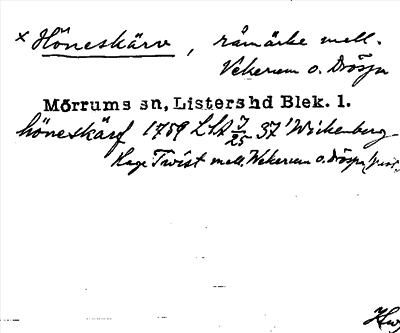 x Höneskärv, råmärke mell.
Vekerum o. Dröspe
Mörrums sn, Listers hd Blek. l.
höneskärf 1759 LSA J/25 37' Wickenberg
Hage Twist mell. Wekerum o. Dröspe